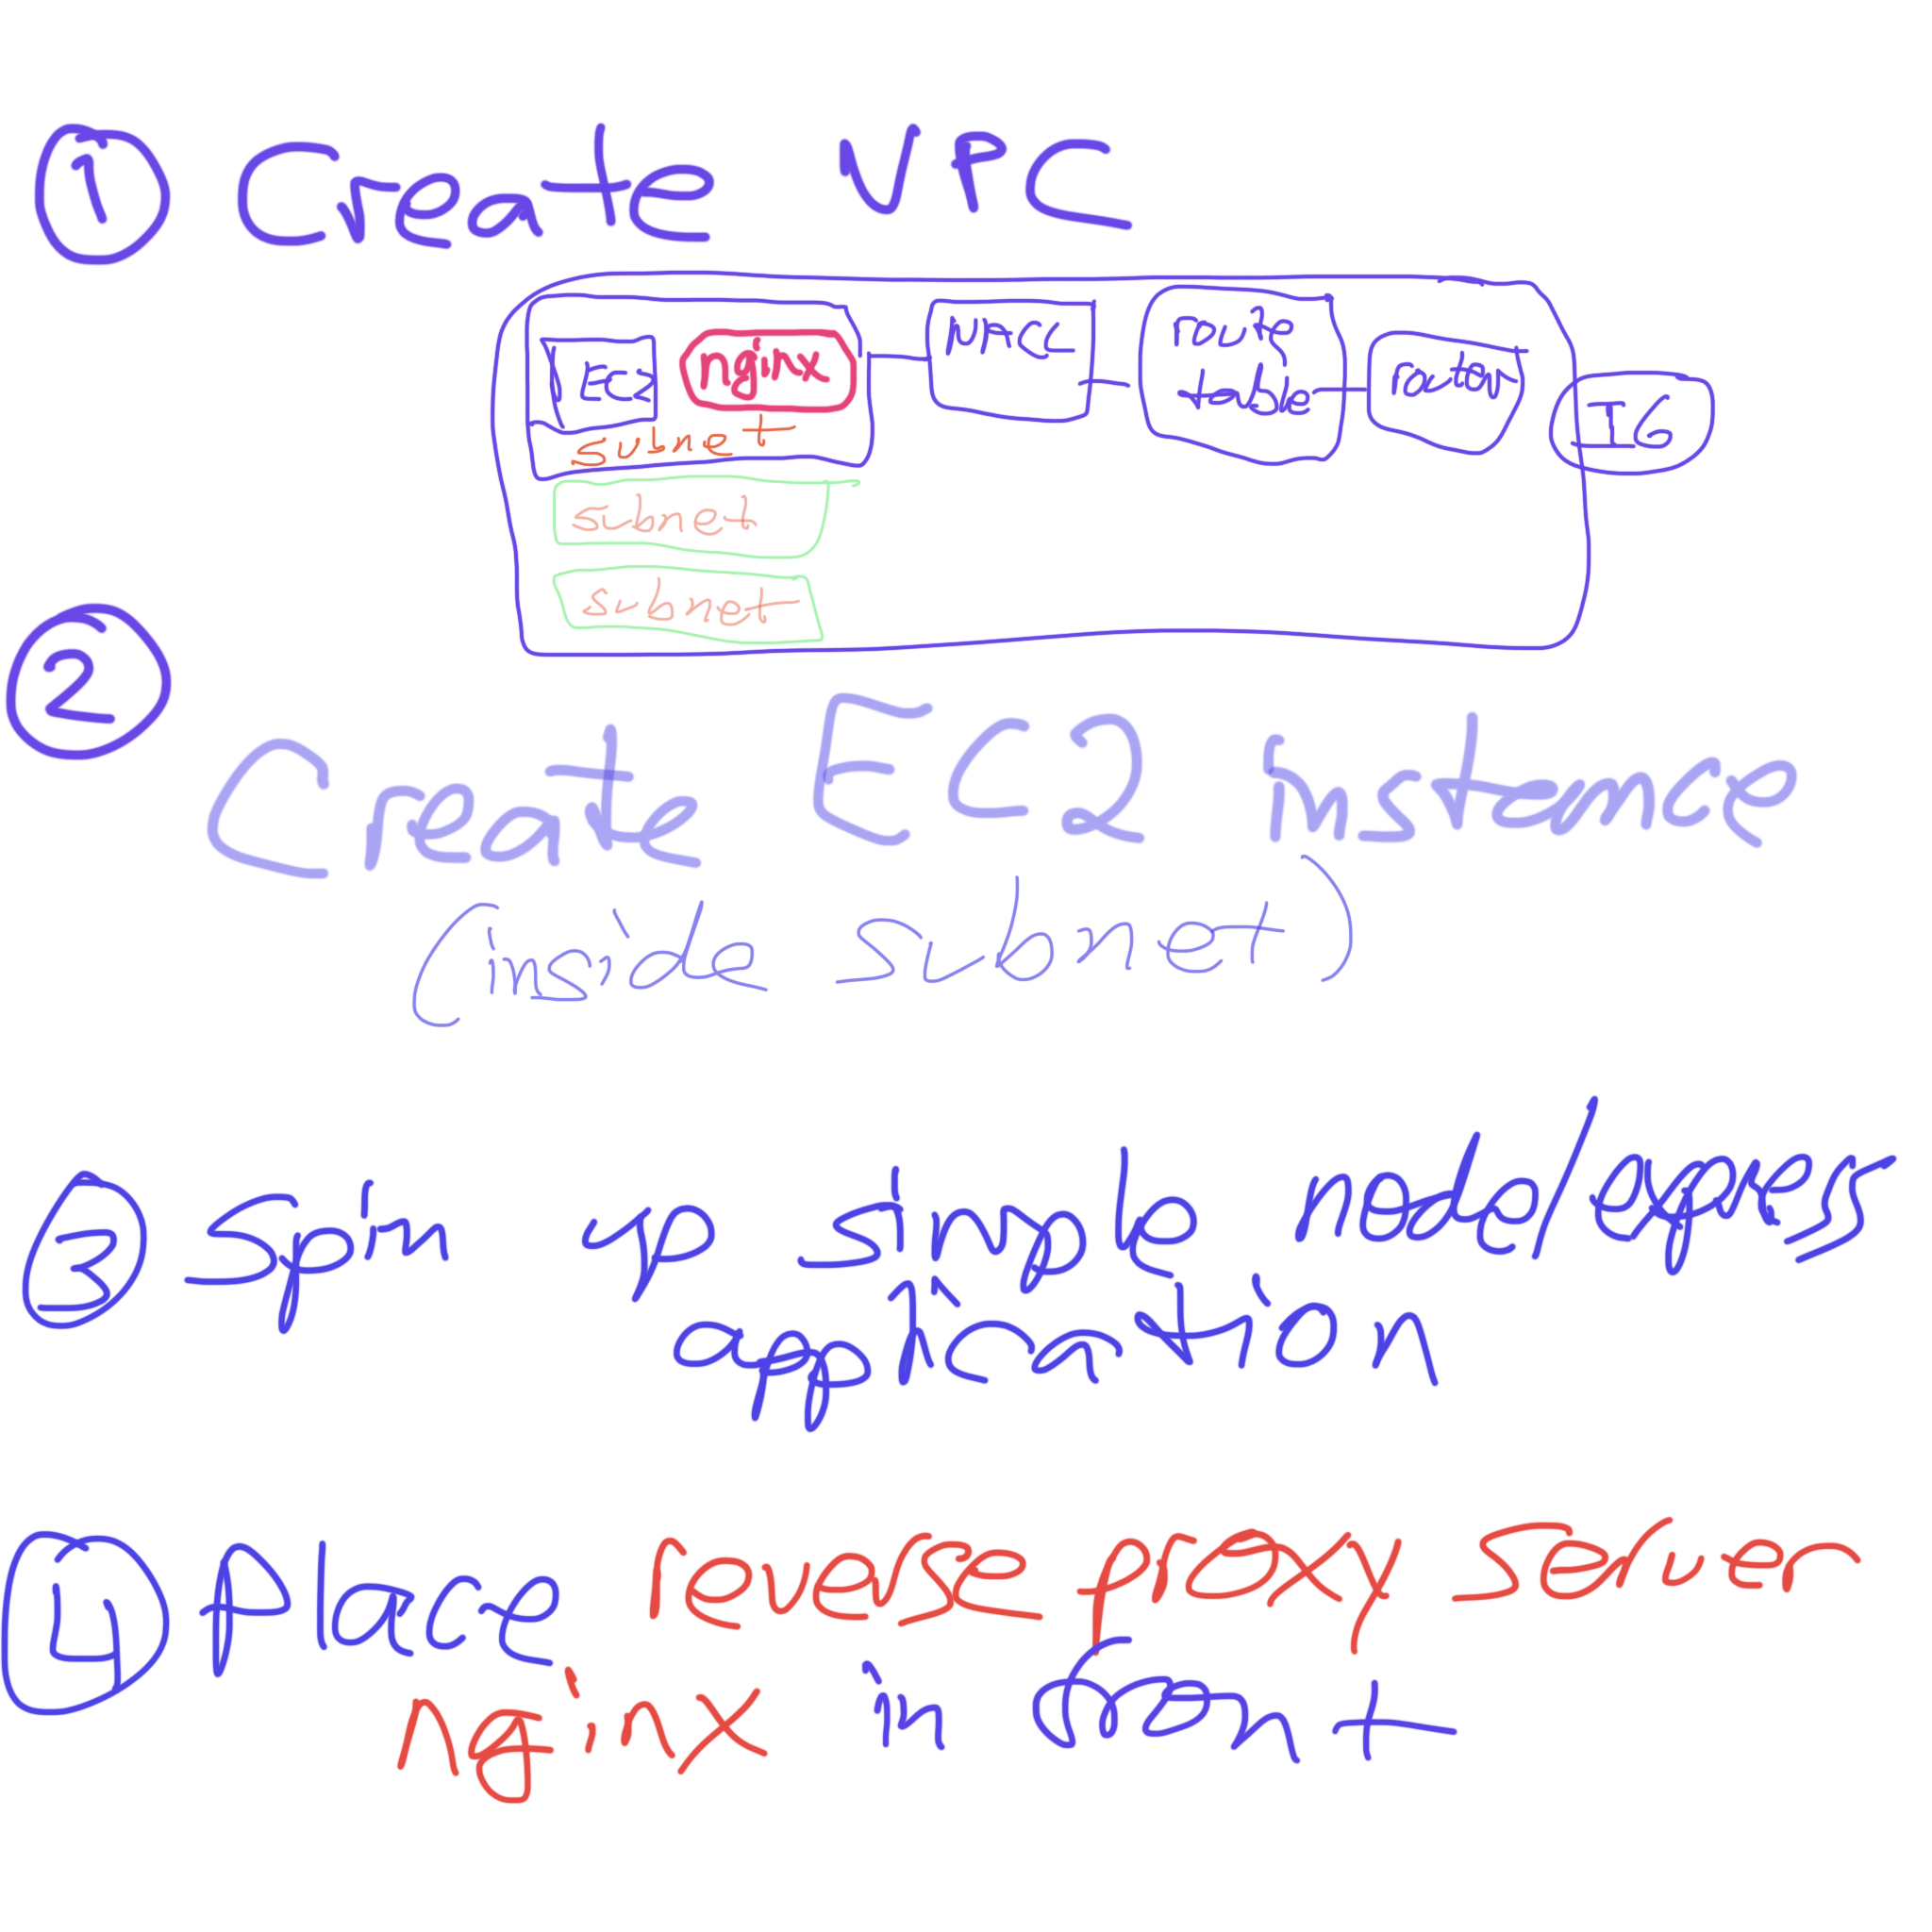 1 Create VPC
EC2 nginx NACL route table router IG
subnet
subnet
subnet
2
Create EC2 Instance
(inside subnet)
3 Spin up simple node/express
application
4 Place reverse proxy server
nginx in front